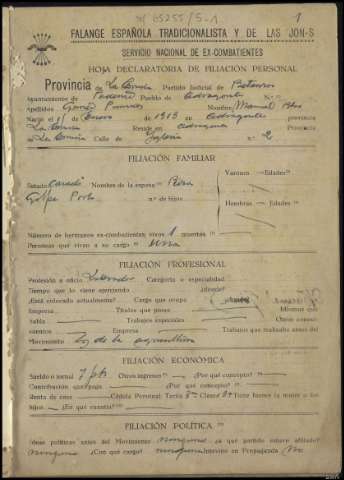 85255/5-1
1
FALANGE ESPAÑOLA TRADICIONALISTA Y DE LAS JON-S
SERVICIO NACIONAL DE EX-COMBATIENTES
HOJA DECLARATORIA DE FILIACIÓN PERSONAL
Provincia de La Coruña Partido Judicial de Betanzos
Ayuntamiento de Paderne Pueblo de Adragonte N.º
Apellidos Gómez Nombre Manuel
Nació el de Enero de 1913 en Adragonte provincia
La Coruña Reside en Adragonte provincia
de La Coruña Calle de n.º 2
FILIACIÓN FAMILIAR
Estado Casado Nombre de la esposa Rosa Varones —Edades
Golpe Porto n.º de hijos
Hembras —Edades
Número de hermanos ex-combatientes vivos 1 muertos
Personas que viven a su cargo una
FILIACIÓN PROFESIONAL
Profesión u oficio Labrador Categoría o especialidad
Tiempo que lo viene ejerciendo ¿dónde?
¿Está colocado actualmente? Cargo que ocupa
Empresa Títulos que posee Idiomas que
habla Trabajos especiales Otros conoci-
mientos Empresa Trabajos que realizaba antes del
Movimiento de la agricultura
FILIACIÓN ECONÓMICA
Sueldo o jornal 7 pts Otros ingresos ¿Por qué concepto?
Contribución que paga ¿Por qué concepto?
Renta de casa Cédula Personal: Tarifa Clase Tiene bienes la mujer o los
hijos ¿En qué cuantía?
FILIACIÓN POLÍTICA
Ideas políticas antes del Movimiento ninguna ¿a qué partido estuvo afiliado?
ninguno ¿Con qué cargo? ninguno Intervino en Propaganda No